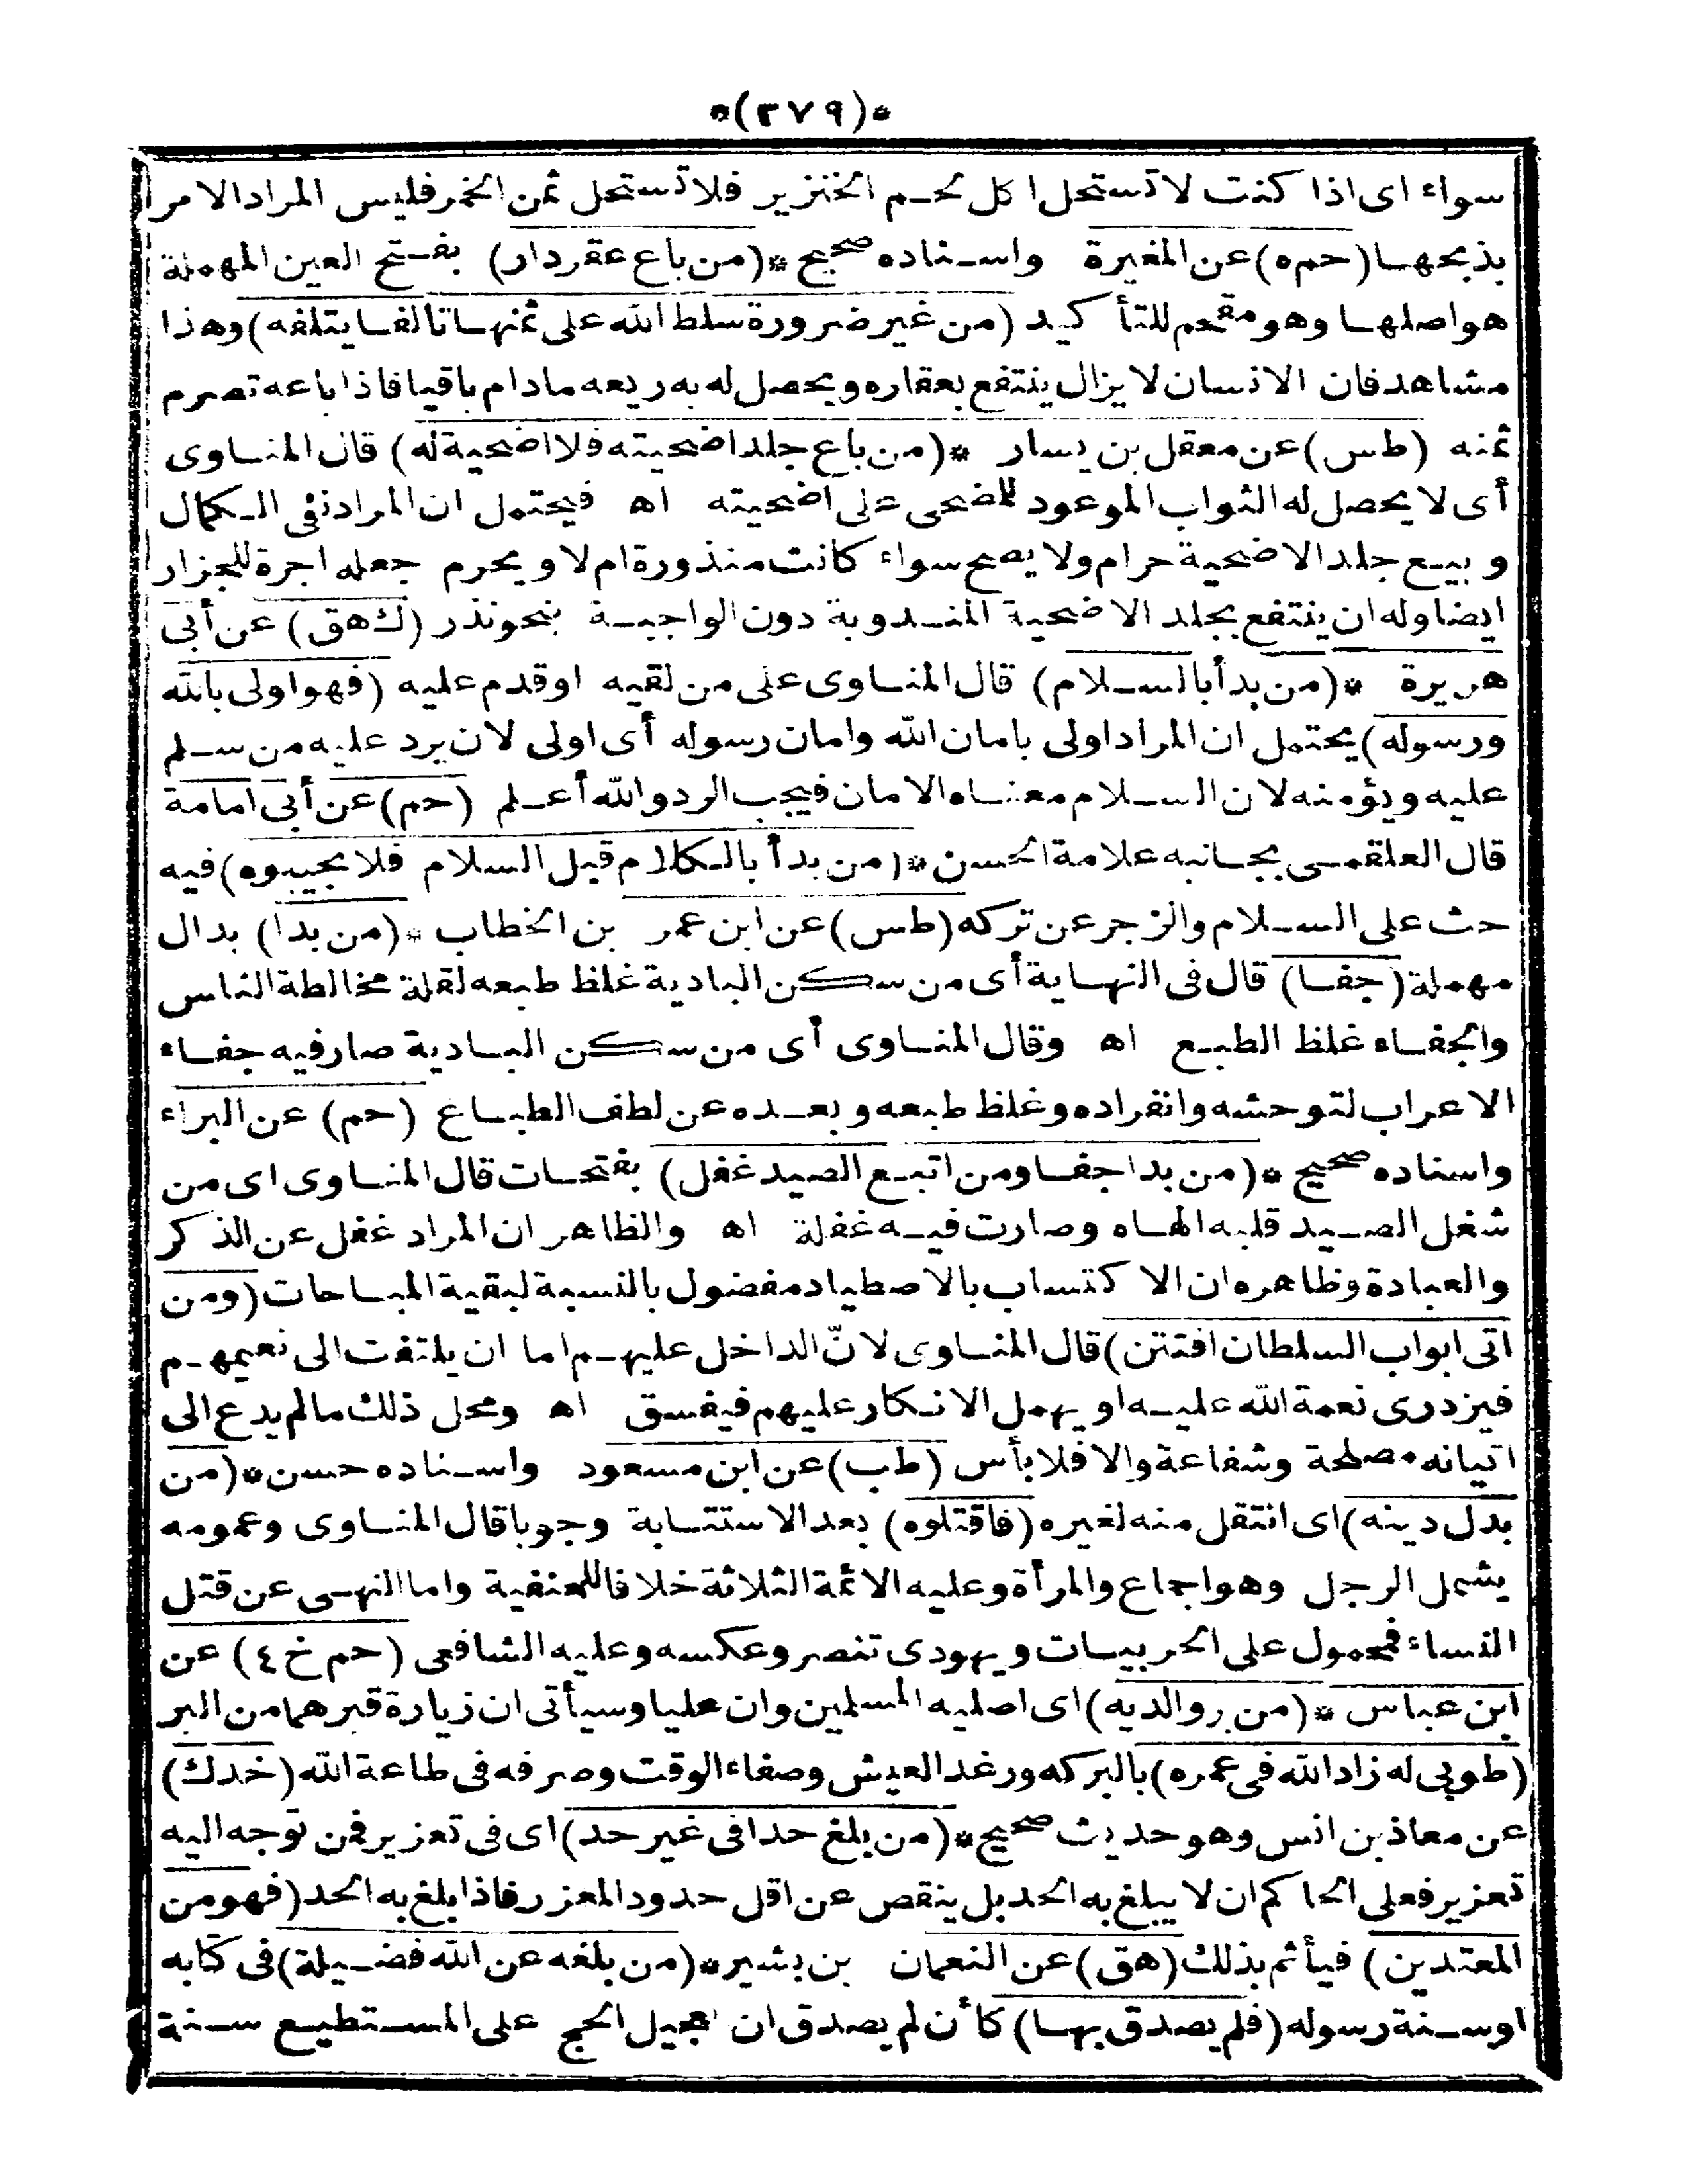 *(٢٧٩)*
سواء اى اذا كنت لا تستحل اكل لحم الخنزير فلا تستحل ثمن الخمر فليس المراد الامر
بذبحها (حم ه) عن المغيرة واسناده صحيح *(من باع عقر دار) بفتح العين المهملة
هو اصلها وهو مقحم للتأكيد (من غير ضرورة سلط الله على ثمنها تالفا يتلفه) وهذا
مشاهد فان الانسان لا يزال ينتفع بعقاره ويحصل له به ريعه مادام باقيا فاذا باعه تصرم
ثمنه (طس) عن معقل بن يسار *(من باع جلد اضحيته فلا اضحية له) قال المناوى
أى لا يحصل له الثواب الموعود للمضحى على اضحيته اه فيحتمل ان المراد نفى الكمال
وبيع جلد الاضحية حرام ولا يصح سواء كانت منذورة ام لا ويحرم جعله اجرة للجزار
ايضا وله ان ينتفع بجلد الاضحية المندوبة دون الواجبة بنحو نذر (ك هق) عن أبى
هريرة *(من بدأ بالسلام) قال المناوى على من لقيه او قدم عليه (فهو اولى بالله
ورسوله) يحتمل ان المراد اولى بامان الله وامان رسوله أى اولى لان يرد عليه من سلم
عليه ويؤمنه لان السلام معناه الامان فيجب الرد والله أعلم (حم) عن أبى امامة
قال العلقمى بجانبه علامة الحسن *(من بدأ بالكلام قبل السلام فلا تجيبوه) فيه
حث على السلام والزجر عن تركه (طس) عن ابن عمر بن الخطاب *(من بدا) بدال
مهملة (جفا) قال فى النهاية أى من سكن البادية غلظ طبعه لقلة مخالطة الناس
والجفاء غلظ الطبع اه وقال المناوى أى من سكن البادية صار فيه جفاء
الاعراب لتوحشه وانفراده وغلظ طبعه وبعده عن لطف الطباع (حم) عن البراء
واسناده صحيح *(من بدا جفا ومن اتبع الصيد غفل) بفتحات قال المناوى اى من
شغل الصيد قلبه الهاه وصارت فيه غفلة اه والظاهر ان المراد غفل عن الذكر
والعبادة وظاهره ان الاكتساب بالاصطياد مفضول بالنسبة لبقية المباحات (ومن
اتى ابواب السلطان افتتن) قال المناوى لانّ الداخل عليهم اما ان يلتفت الى نعيمهم
فيزدرى نعمة الله عليه او يهمل الانكار عليهم فيفسق اه ومحل ذلك مالم يدع الى
اتيانه مصلحة وشفاعة والا فلا بأس (طب) عن ابن مسعود واسناده حسن *(من
بدل دينه) اى انتقل منه لغيره (فاقتلوه) بعد الاستتابة وجوبا قال المناوى وعمومه
يشمل الرجل وهو اجماع والمرأة وعليه الائمة الثلاثة خلافا للحنفية واما النهى عن قتل
النساء فمحمول على الحربيات ويهودى تنصر وعكسه وعليه الشافعى (حم خ ٤) عن
ابن عباس *(من بر والديه) اى اصليه المسلمين وان عليا وسيأتى ان زيارة قبرهما من البر
(طوبى له زاد الله فى عمره) بالبركه ورغد العيش وصفاء الوقت وصرفه فى طاعة الله (خد ك)
عن معاذ بن انس وهو حديث صحيح *(من بلغ حدا فى غير حد) اى فى تعزير فمن توجه اليه
تعزير فعلى الحاكم ان لا يبلغ به الحد بل ينقص عن اقل حدود المعزر فاذا بلغ به الحد (فهو من
المعتدين) فيأثم بذلك (هق) عن النعمان بن بشير *(من بلغه عن الله فضيلة) فى كتابه
او سنة رسوله (فلم يصدق بها) كأن لم يصدق ان تعجيل الحج على المستطيع سنة